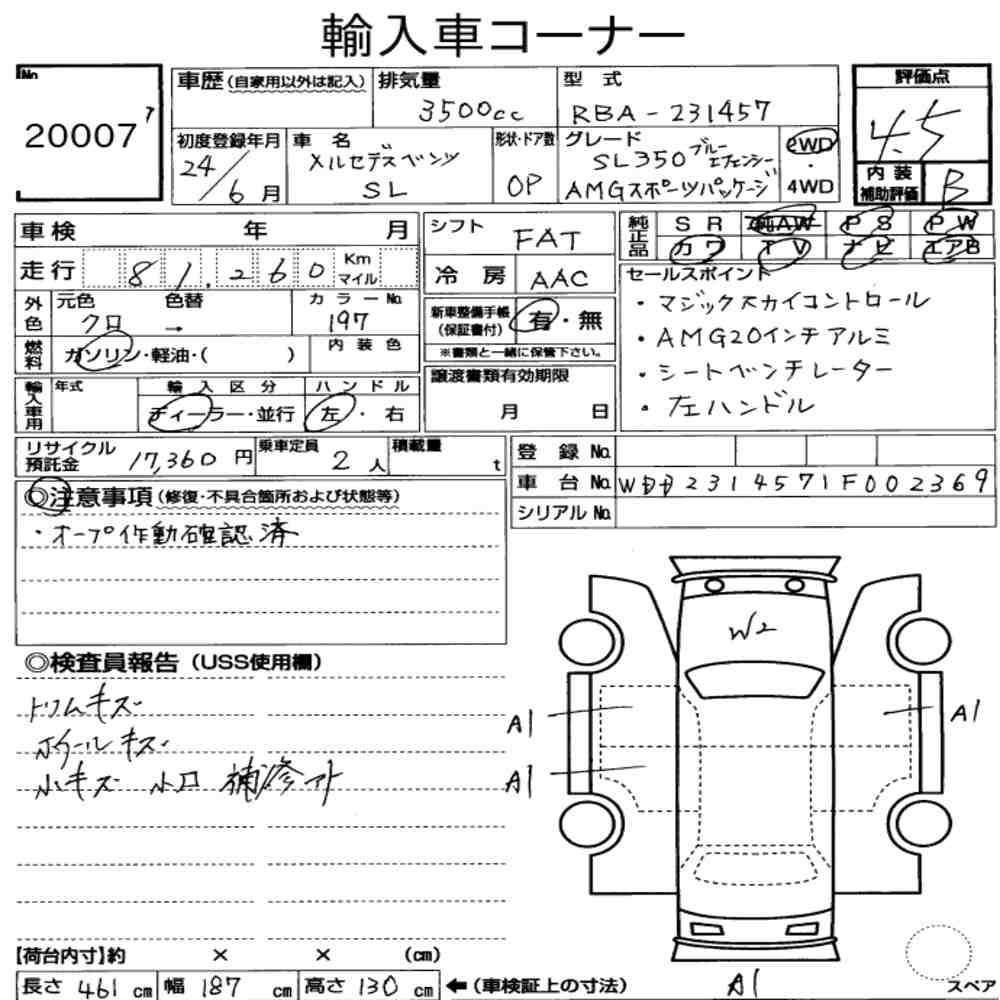 輸入車コーナー
No.
20007
ア
車歴(自家用以外は記入)
排気量
3500cc
型式
RBA-231457
評価点
4.5
初度登録年月
24/6月
車名
メルセデスベンツ
SL
形状・ドア数
OP
グレード
SL350ブルーエフェンシー
AMGスポーツパッケージ
2WD
・
4WD
内装
補助評価
B
車検 年 月
走行 81,260 Km
マイル
シフト
FAT
冷房
AAC
純正品
SR 純AW PS PW
カワ TV ナビ エアB
外色
元色 色替
クロ →
カラーNo.
197
燃料
ガソリン・軽油・( )
内装色
新車整備手帳
(保証書付)
有・無
※書類と一緒に保管下さい。
セールスポイント
・マジックスカイコントロール
・AMG20インチアルミ
・シートベンチレーター
・左ハンドル
輸入車用
年式
輸入区分
ディーラー・並行
ハンドル
左・右
譲渡書類有効期限
月 日
リサイクル
預託金 17,360円
乗車定員
2人
積載量
t
登録No.
車台No. WDD2314571F002369
シリアルNo.
◎注意事項(修復・不具合箇所および状態等)
・オープ作動確認済
◎検査員報告(USS使用欄)
トリムキズ
ホイールキズ
小キズ 小凹 補修アト
W2
A1
A1
A1
A1
【荷台内寸】約 × × (cm)
長さ 461 cm 幅 187 cm 高さ 130 cm ←(車検証上の寸法)
スペア